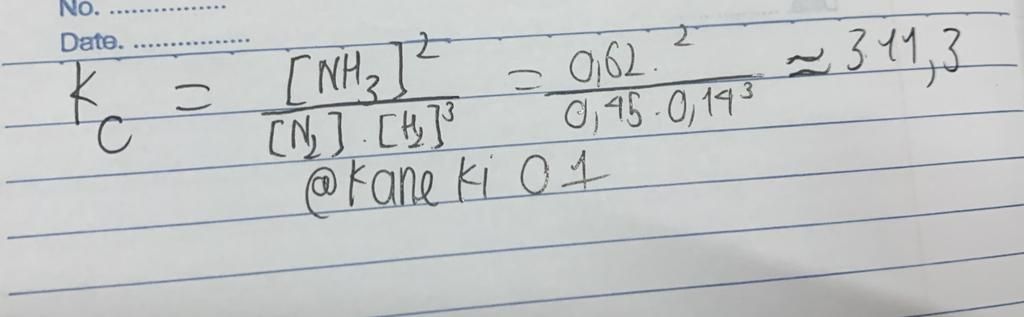 No. ................
Date. ................
K_C = [NH₃]² / [N₂] . [H₂]³ = 0,62.² / 0,45 . 0,14³ ≈ 311,3
@Kaneki 01